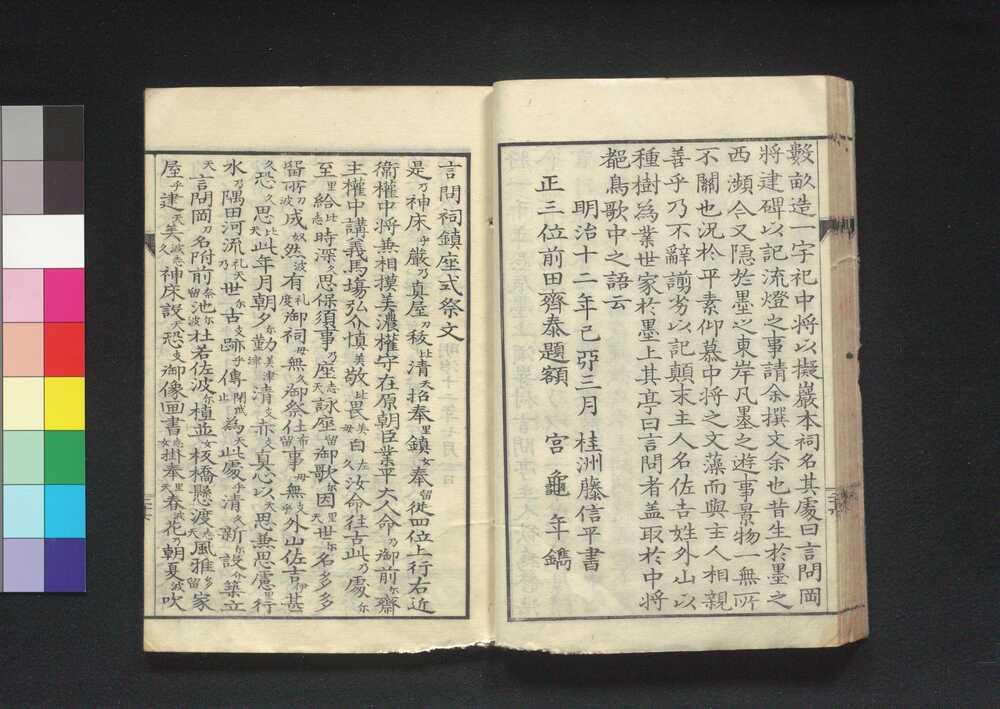 數畝造一宇祀中将以擬巖本祠名其處曰言問岡
将建碑以記流燈之事請余撰文余也昔生於墨之
西瀕今又隱於墨之東岸凡墨之遊事景物一無所
不關也況於平素仰慕中将之文藻而與主人相親
善乎乃不辭謭劣以記顛末主人名佐吉姓外山以
種樹為業世家於墨上其亭曰言問者盖取於中将
都鳥歌中之語云
明治十二年己卯三月　桂洲藤信平書
正三位前田齊泰題額　宮　龜　年鐫
言問祠鎮座式祭文
是乃神床乎嚴乃真屋刀秡比清天招奉里鎮女奉留從四位上行右近
衞權中将兼相摸美濃權守在原朝臣業平大人命乃御前尓齋
主權中講義馬場弘介慎美敬比畏美毛白左久汝命往古此乃處尓
至里給比志時深久思保須事乃座天志詠座留御歌尓因里天世尓名多多
留所刀波成奴然波有礼度御祠毋無久御祭仕布留事毋無支乎外山佐吉伊甚
久恐久思比天此年月朝夕尓勤美董津清支赤支真心以天思兼思慮里行
水乃隅田河流礼天乃世尓古支跡乎傳閇止為弖天此處乎清久新尓設介築立
天言問岡刀名附前奈留池尓波杜若佐波尓植並女板橋懸渡志天風雅多留家
屋乎建天美久波志神床設天恐支御像画書女志掛奉里天春波花乃朝夏波吹